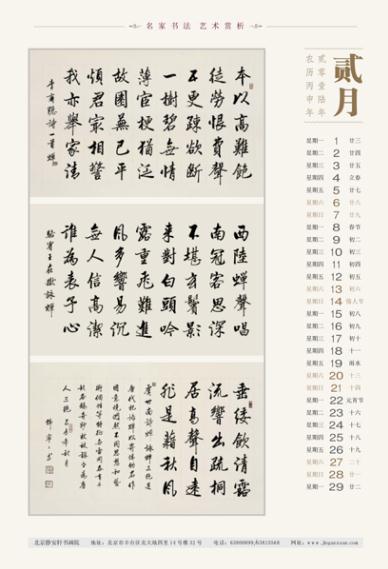 名家书法 艺术赏析
贰月
贰零壹陆年
农历丙申年
星期一 1 廿三
星期二 2 廿四
星期三 3 廿五
星期四 4 立春
星期五 5 廿七
星期六 6 廿八
星期日 7 廿九
星期一 8 春节
星期二 9 初二
星期三 10 初三
星期四 11 初四
星期五 12 初五
星期六 13 初六
星期日 14 情人节
星期一 15 初八
星期二 16 初九
星期三 17 初十
星期四 18 十一
星期五 19 雨水
星期六 20 十三
星期日 21 十四
星期一 22 元宵节
星期二 23 十六
星期三 24 十七
星期四 25 十八
星期五 26 十九
星期六 27 二十
星期日 28 廿一
星期一 29 廿二
本以高難飽
徒勞恨費聲
五更疎欲斷
一樹碧無情
薄宦梗猶泛
故園蕪已平
煩君最相警
我亦舉家清
李商隱詩一首 蟬
西陸蟬聲唱
南冠客思深
不堪玄鬢影
來對白頭吟
露重飛難進
風多響易沉
無人信高潔
誰為表予心
駱賓王在獄詠蟬
垂緌飲清露
流響出疏桐
居高聲自遠
非是藉秋風
虞世南詩蟬 詠蟬三絕是
北京静安轩书画院